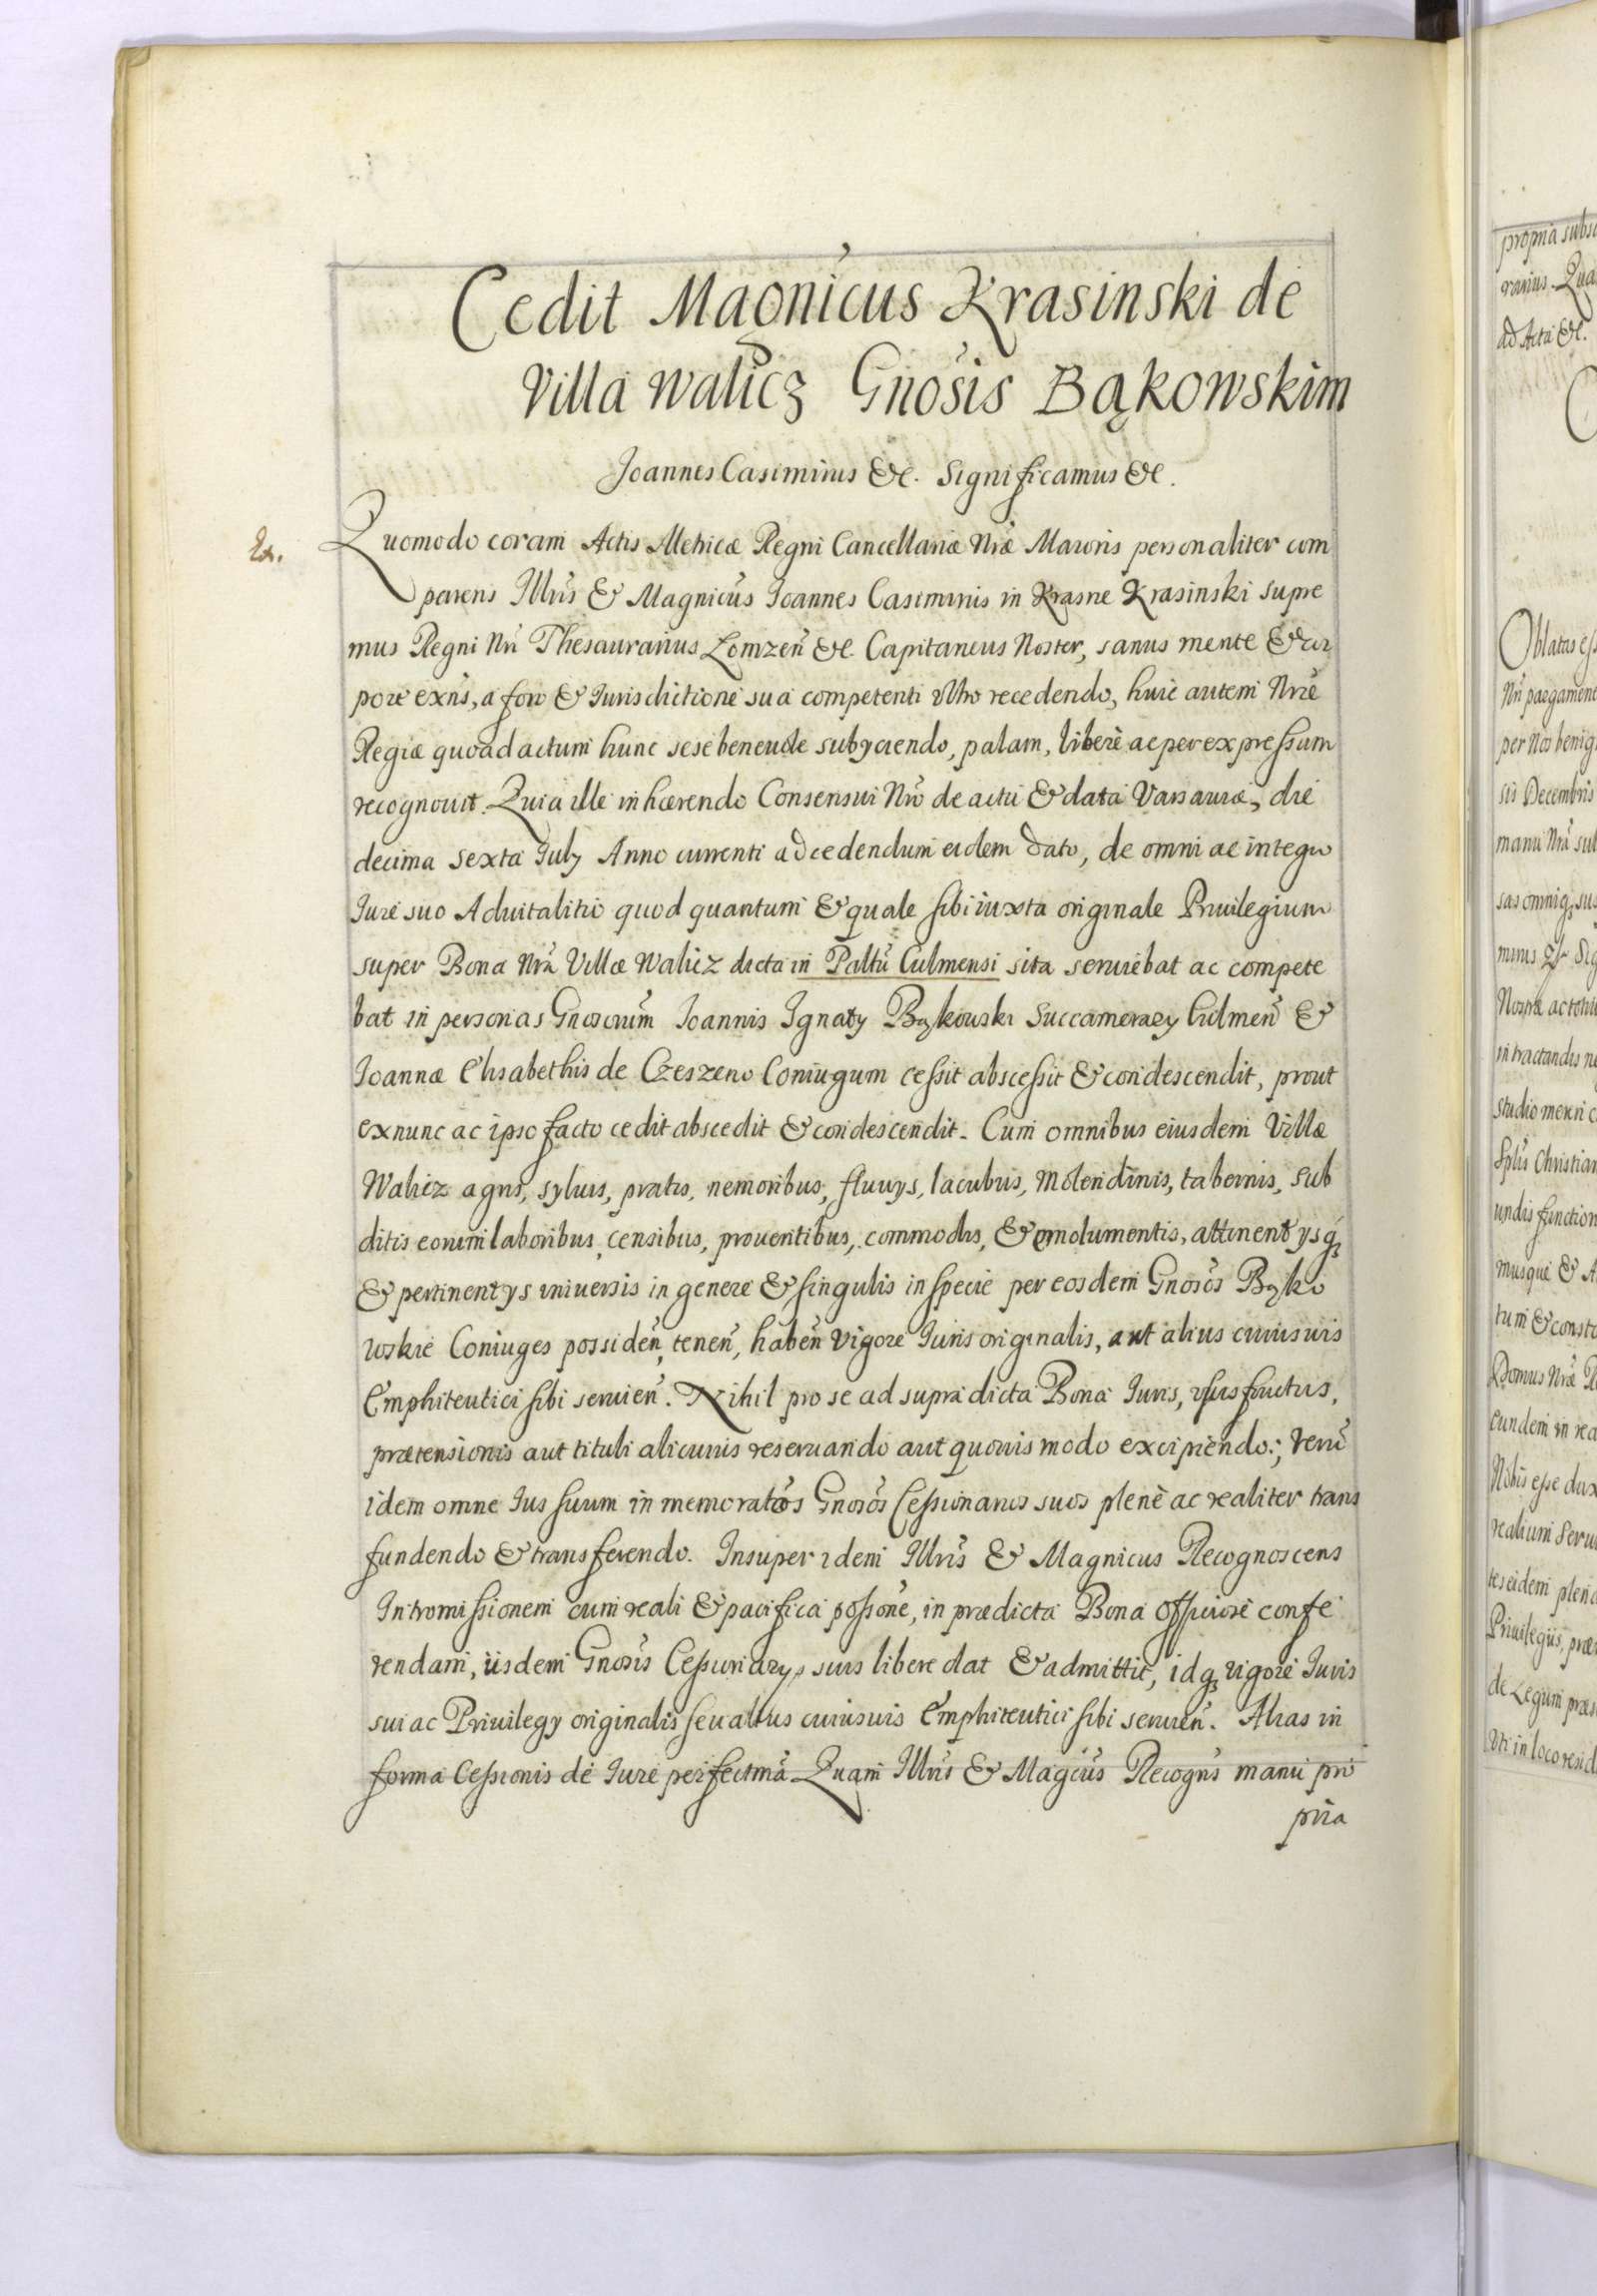 Cedit Magnicus Krasinski de
Villa Walicz Gnosis Bąkowskim
Joannes Casimirus &c. Significamus &c.
Ex.
Quomodo coram Actis Metricæ Regni Cancellariæ Nræ Maioris personaliter com
parens Illris & Magnicus Joannes Casimirus in Krasne Krasinski Supre
mus Regni Nri Thesaurarius Lomzen &c. Capitaneus Noster, sanus mente & cor
pore exns, a foro & Jurisdictione sua competenti vltro recedendo, huic autem Nræ
Regiæ quoad actum hunc sese beneuole subyciendo, palam, liberè ac per expressum
recognouit. Quia ille inhærendo Consensui Nro de actu & data Varsauiæ, die
decima sexta July Anno currenti ad cedendum eidem dato, de omni ac integro
Jure suo Aduitalitio quod quantum & quale sibi iuxta originale Priuilegium
super Bona Nra Villæ Walicz dicta in Paltu Culmensi sita seruiebat ac compete
bat in personas Gnosorum Joannis Ignaty Bąkowski Succamerary Culmen &
Joannæ Elisabethis de Czeszeno Coniugum cessit abscessit & condescendit, prout
exnunc ac ipso facto cedit abscedit & condescendit. Cum omnibus eiusdem Villæ
Walicz agris, syluis, pratis, nemoribus, fluuys, lacubus, molendinis, tabernis, sub
ditis eorum laboribus, censibus, prouentibus, commodis, & emolumentis, attinentysq
& pertinentys vniuersis in genere & singulis in specie per eosdem Gnosos Bąko
wskie Coniuges possiden, tenen, haben vigore Juris originalis, aut alius cuiusuis
Emphiteutici sibi seruien. Nihil pro se ad supradicta Bona Juris, vsusfructus,
prætensionis aut tituli alicuius reseruando aut quouis modo excipiendo; veru
idem omne Jus suum in memoratos Gnosos Cessionarios suos plenè ac realiter trans
fundendo & transferendo. Insuper idem Illris & Magnicus Recognoscens
Intromissionem cum reali & pacifica possone, in prædicta Bona officiose confe
rendam, iisdem Gnosis Cessionarys suis libere dat & admittit, idq vigore Juris
sui ac Priuilegy originalis seu alius cuiusuis Emphiteutici sibi seruien. Alias in
forma Cessionis de Jure perfectma Quam Illris & Magcus Recogns manu pro
pria